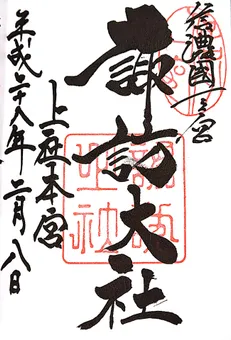 信濃國一之宮
諏訪大社
上社本宮
平成二十八年二月八日